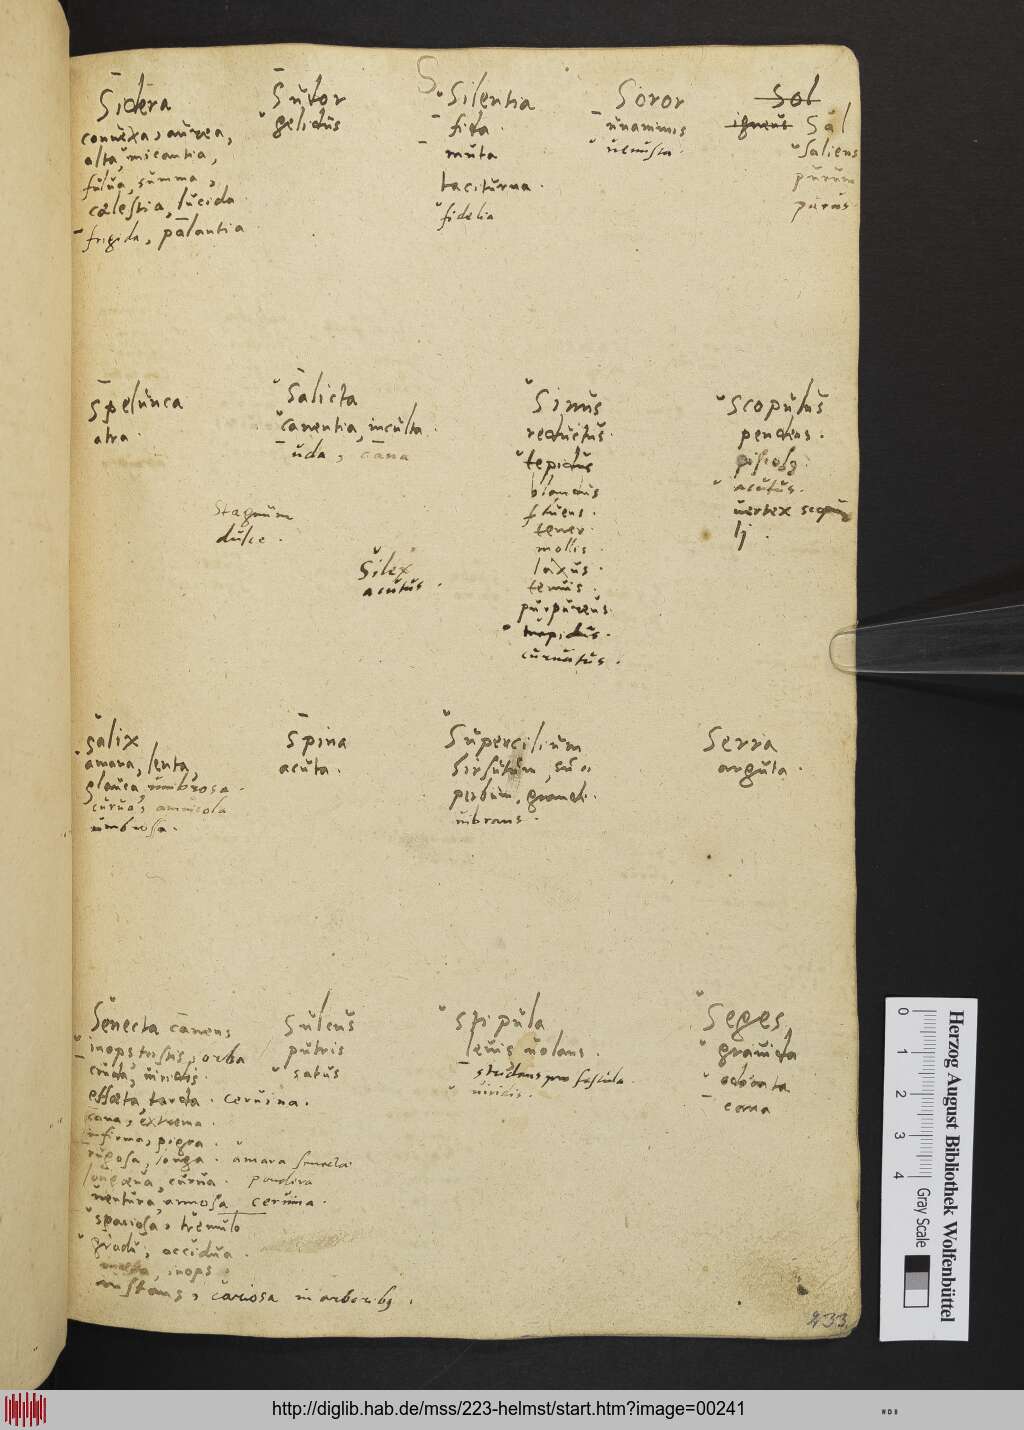 S
Sidera
connexa, aurea,
alta, micantia,
fulua, summa,
cælestia, lucida
frigida, palantia
Sutor
gelidus
Silentia
fida
muta
taciturna.
fidelia
Soror
unanimis
uenusta.
Sol
igneus
Sal
saliens
purum
purus
Spelunca
atra.
Salicta
canentia, inculta.
uda, cana
Stagnum
dulce.
Silex
acutus.
Sinus
reductus.
tepidus
blandus
fluens.
tener.
mollis.
laxus.
tenuis.
purpureus.
trepidus.
curuatus.
Scopulus
pendens.
acutus.
uertex scopu
lj.
Salix
amara, lenta,
glauca, umbrosa.
curua, amnicola
umbrosa.
Spina
acuta.
Supercilium
hirsutum, su
perbum, grande.
uibrans.
Serra
arguta.
Senecta canens
inops tristis, orba
cruda, uiridis.
effœta, tarda. ceruina.
cana, extrema.
infirma, pigra.
rugosa, longa. amara senecta
longæua, curua.
uentura, annosa ceruina.
spaciosa, tremulo
gradu, occidua.
inops
cariosa in arboribꝫ.
Sulcus
putris
satus
Stipula
leuis uolans.
stridens pro fistula.
uiridis.
Seges
grauida
odorata
cana
233.
Herzog August Bibliothek Wolfenbüttel
0 1 2 3 4
Gray Scale
http://diglib.hab.de/mss/223-helmst/start.htm?image=00241
WDB